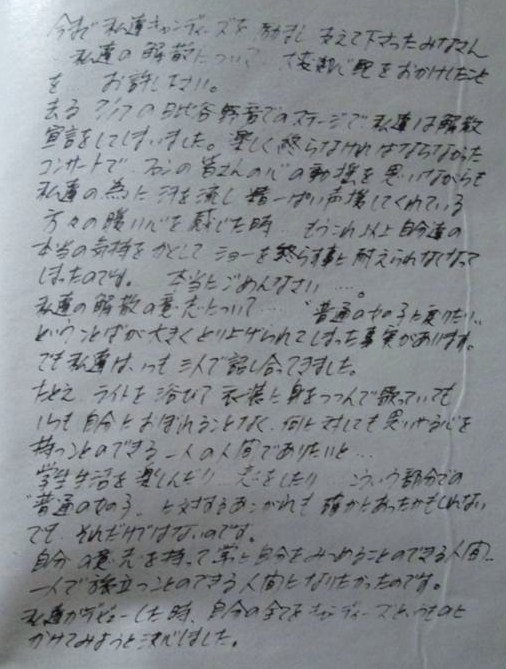 今まで私達キャンディーズを励まし支えて下さったみなさん
私達の解散について 大変御心配をおかけしたこと
を お許し下さい。
去る7/17の日比谷野音でのステージで私達は解散
宣言をしてしまいました。楽しく終らなければならなかった
コンサートで ファンの皆さんの心の動揺を思いながらも
私達の為に汗を流し精一ぱい声援してくれている
方々の暖い心を感じた時 もうこれ以上自分達の
本当の気持をかくして ショーを終る事に耐えられなくなって
しまったのです。 本当にごめんなさい……。
私達の解散の意志について…… “普通の女の子に戻りたい”
ということばが大きくとり上げられてしまった事実があります。
でも私達は、いつも三人で話し合ってきました。
たとえ ライトを浴びて 衣装に身をつつんで歌っていても
いつも自分におぼれることなく 何に対しても思いやる心を
持つことのできる一人の人間でありたいと…
学生生活を楽しんだり 恋をしたり こういう部分での
“普通の女の子”に対するあこがれも確かにあったかもしれない
でも それだけではないのです。
自分の意志を持って常に自分をみつめることのできる人間…
一人で旅立つことのできる人間になりたかったのです。
私達がデビューした時、自分の全てをキャンディーズというものに
かけてみようと決心しました。